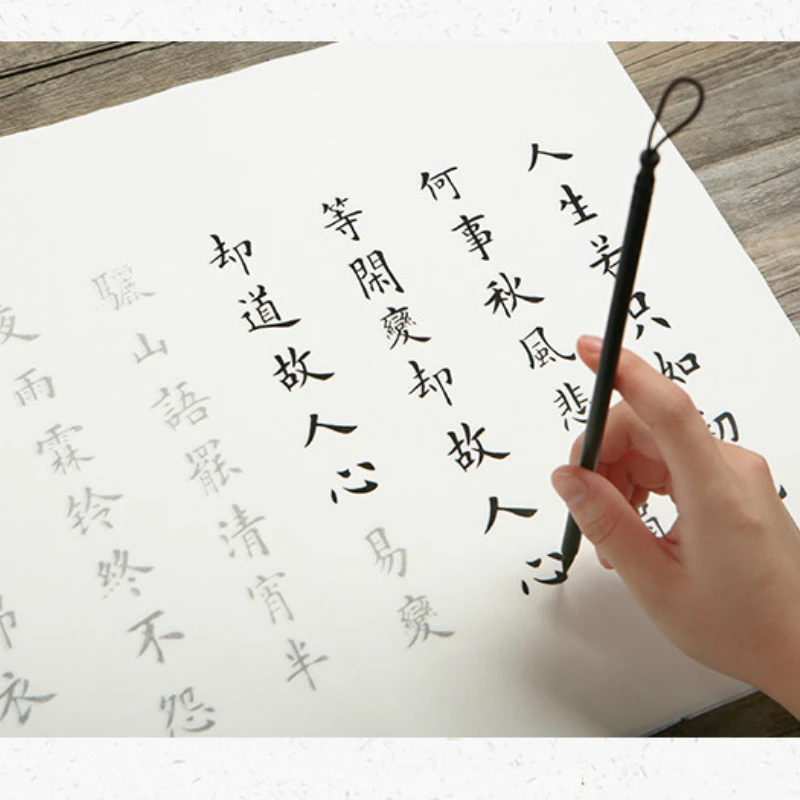 人生若只如初
何事秋風悲
等閑變却故人心
却道故人心易變
驪山語罷清宵半
夜雨霖铃終不怨
衣